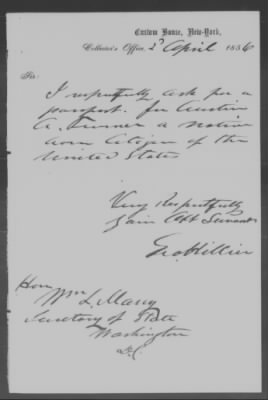 Custom House, New-York,
Collector's Office, 2d April 1856
Sir:
I respectfully ask for a
passport for Austin
A. Turner a native
born Citizen of the
United States
Very Respectfully
Your Obt Servant
Geo Hillier
Hon
Wm L. Marcy
Secretary of State
Washington
D.C.